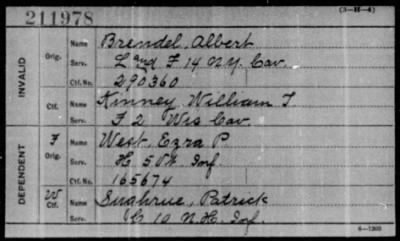 211978
(3-H-4)
INVALID
Orig.
Name Brendel, Albert
Serv. L and F 14 N.Y. Cav.
Ctf. No. 290360
Ctf.
Name Kinney, William T
Serv. F 2 Wis Cav.
DEPENDENT
F
Orig.
Name West, Ezra P
Serv. H 50 Inf
Ctf. No. 165674
W
Ctf.
Name Sughrue, Patrick
Serv. C 10 N.H. Inf.